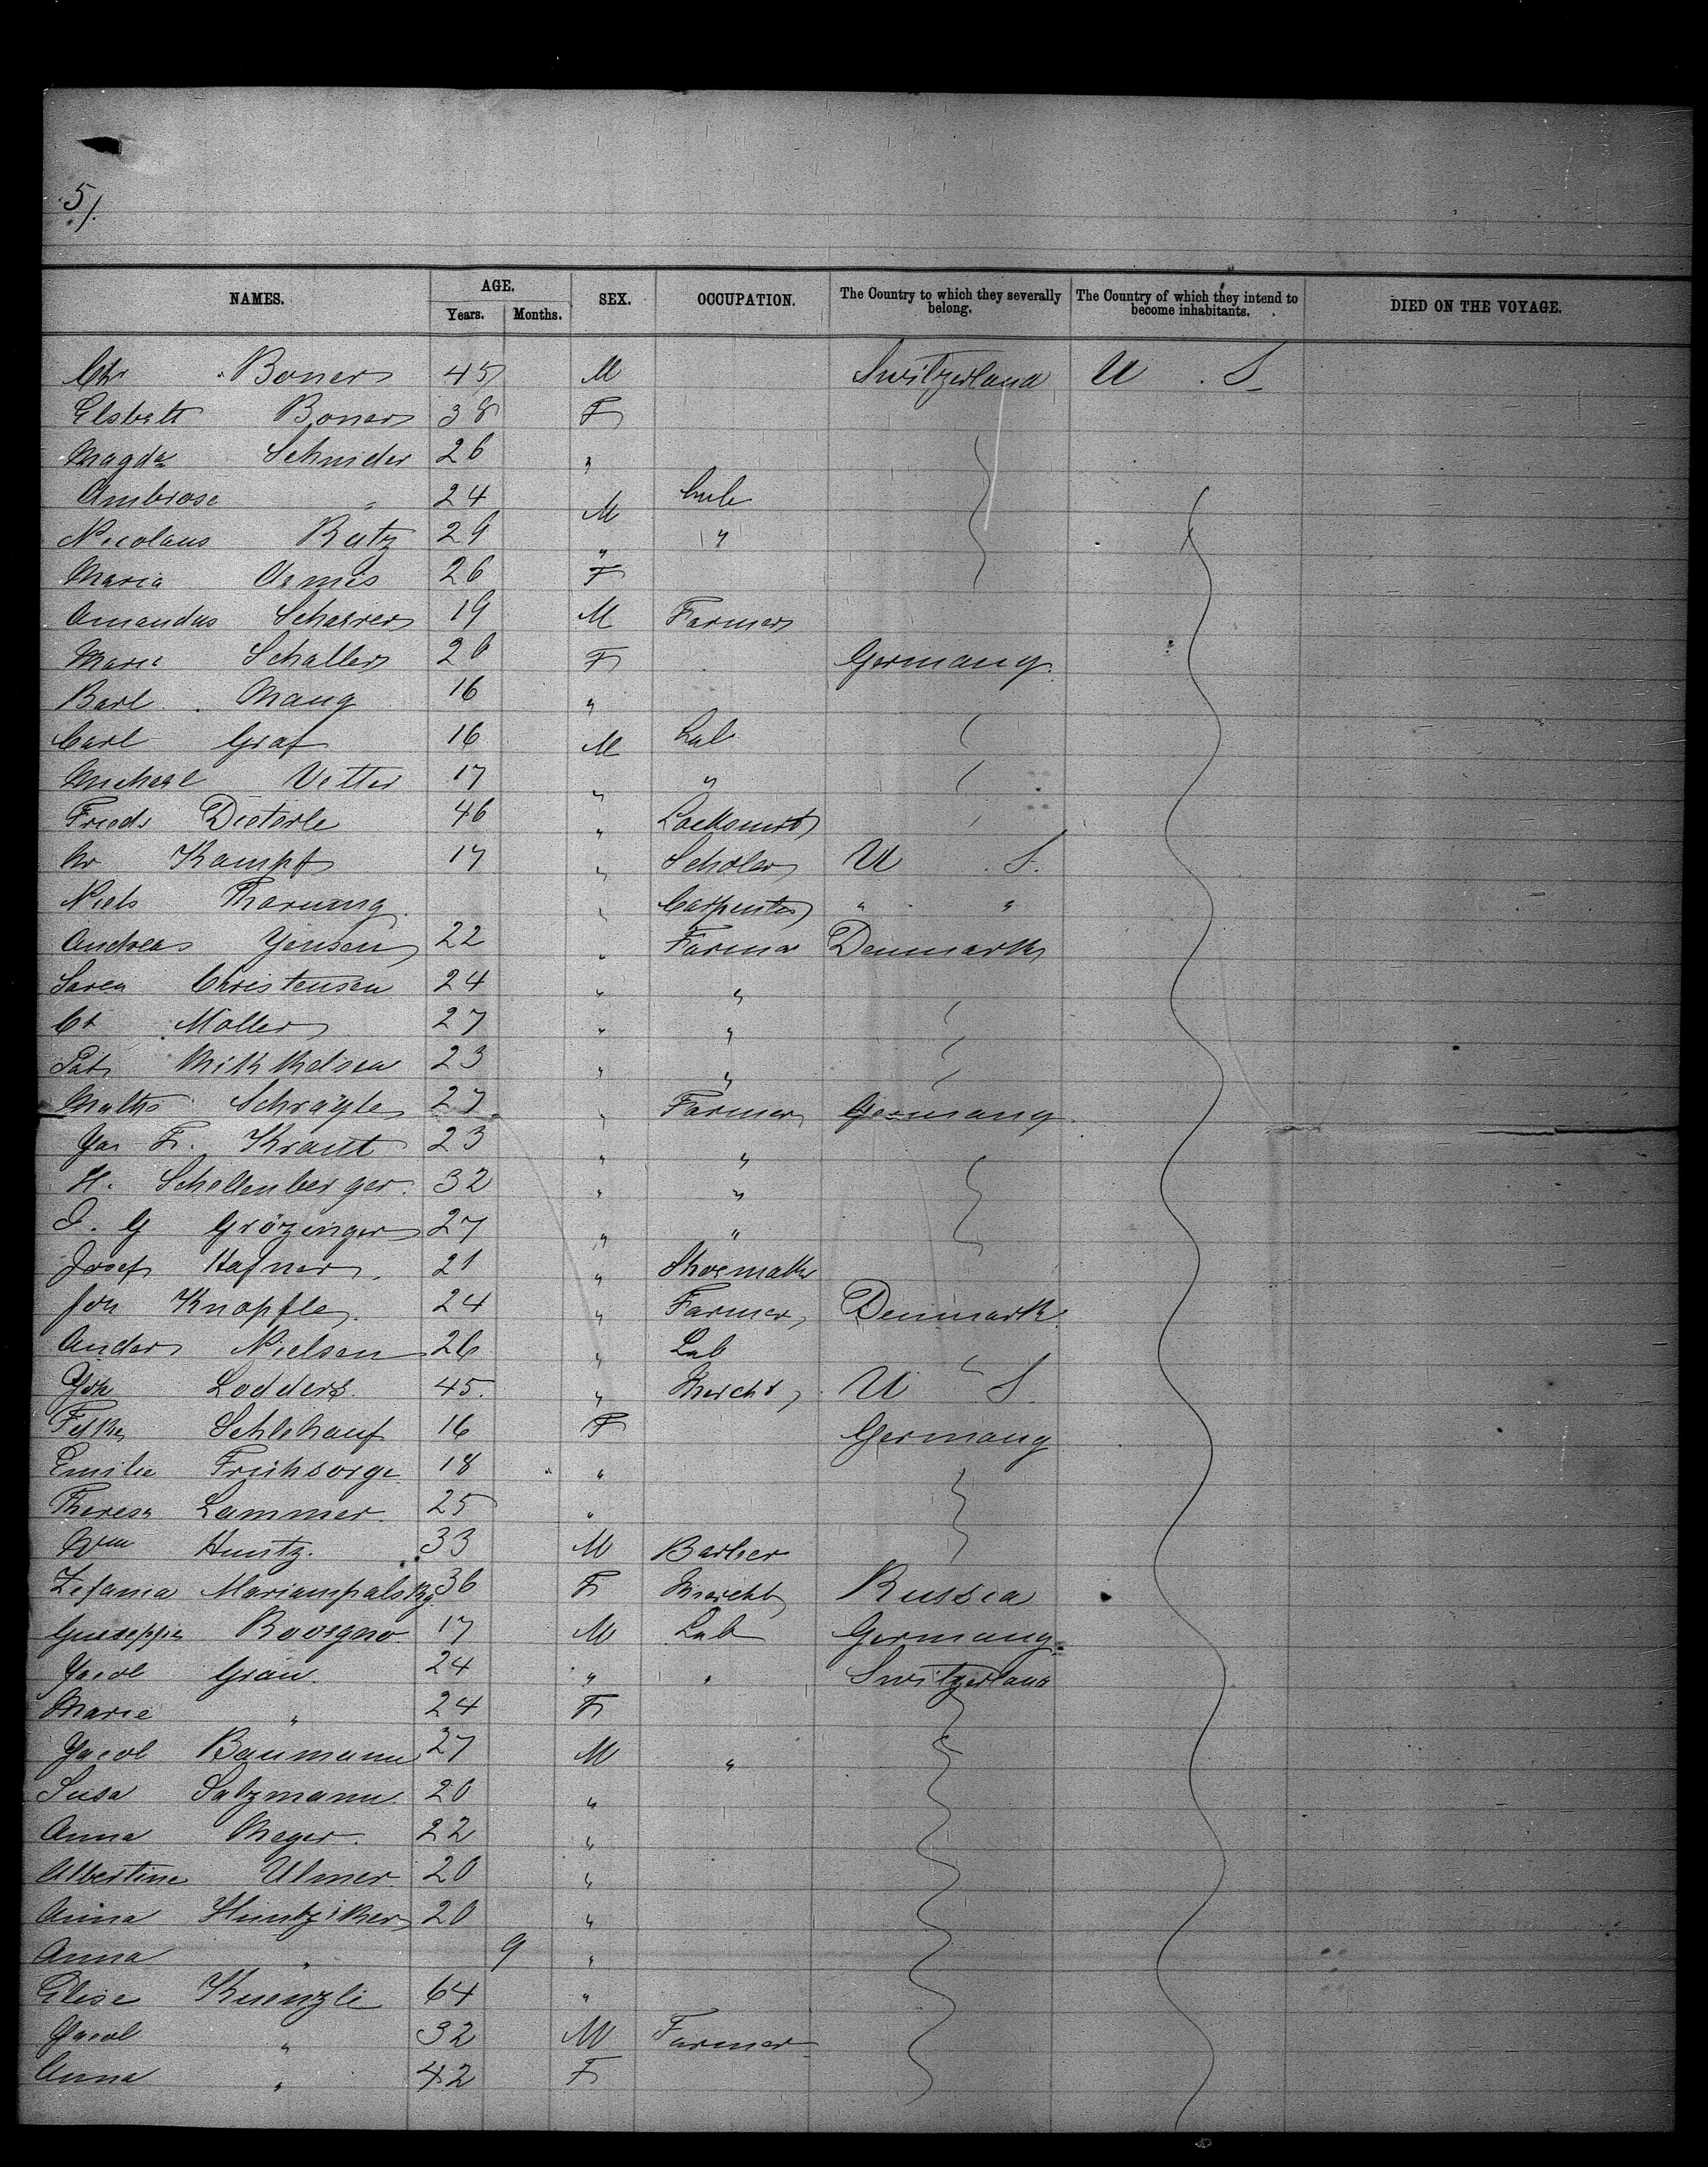 5/.
NAMES. AGE. SEX. OCCUPATION. The Country to which they severally belong. The Country of which they intend to become inhabitants. DIED ON THE VOYAGE.
Years. Months.
Chr Boner 45 M Switzerland U . S
Elsbeth Boner 38 F
Magda Schnider 26 "
Ambrose " 24 M
Nicolaus Batz 29 " "
Maria Armis 26 F
Amandus Scharrer 19 M Farmer
Marie Schaller 20 F Germany
Barl Maug 16 "
Carl Graf 16 M Lab
Michael Vetter 17 " "
Friedr Dieterle 46 " Locksmith
Kampf 17 " Scholar U . S.
Niels Thorning " Carpenter " "
Andreas Jensen 22 " Farmer Denmark
Soren Christensen 24 " "
Ch Moller 27 " "
Mikkelsen 23 " "
Maths Schrayle 27 " Farmer Germany
Jas F. Kraut 23 " "
H. Schellenberger 32 " "
J. G Grözinger 27 " "
Josef Hafner 21 " Shoemaker
Joh Knopfle 24 " Farmer Denmark
Anders Nielsen 26 " Lab
Joh Lodders 45 " Mercht U S
Schlehauf 16 F Germany
Emilie Frühsorge 18 "
Theresa Lammer 25 "
Wm Huntz. 33 M Barber
Zefania Mariampalsky 36 F Mercht Russia
Guiseppe 17 M Lab Germany
Jacob Grau. 24 " " Switzerland
Marie " 24 F
Jacob Baumann 27 M "
Susa Salzmann 20 "
Anna Meyer. 22 "
Albertine Ulmer 20 "
Anna Huntziker 20 "
Anna " 9 "
Elise Kuenzli 64 "
Jacob " 32 M Farmer
Anna " 42 F